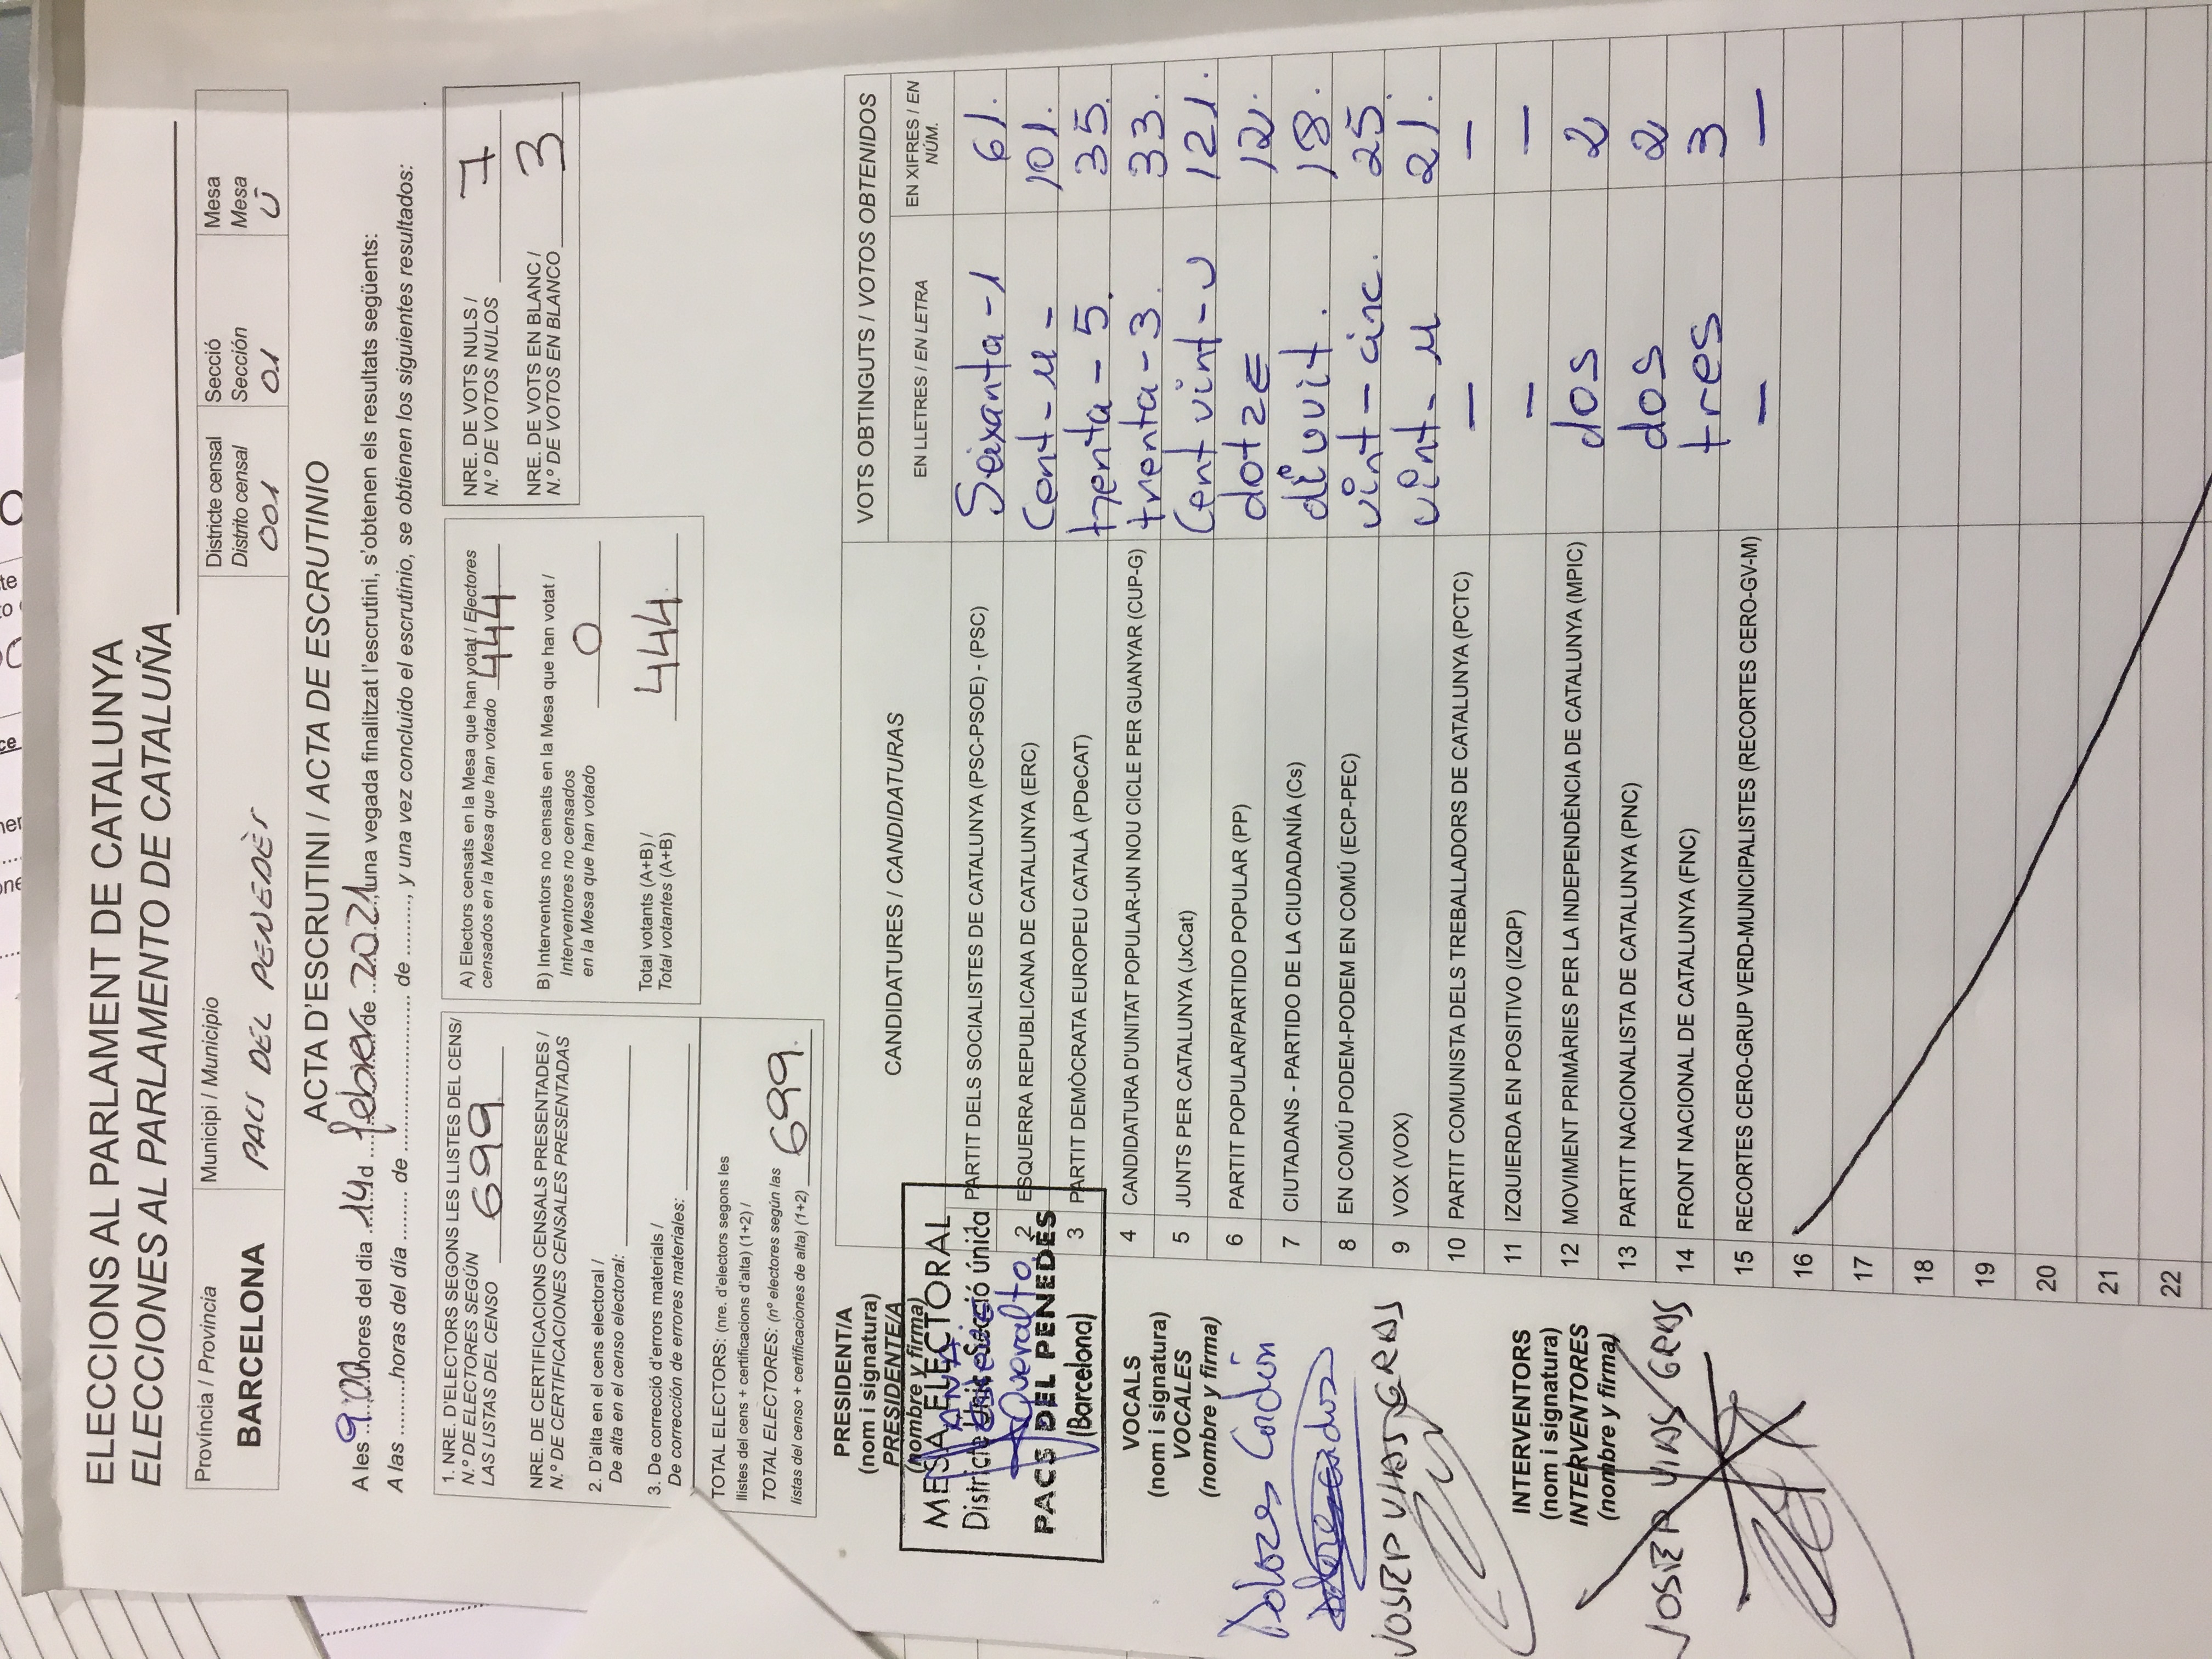 ELECCIONS AL PARLAMENT DE CATALUNYA
ELECCIONES AL PARLAMENTO DE CATALUÑA
Província / Provincia
BARCELONA
Municipi / Municipio
PACS DEL PENEDÈS
Districte censal
Distrito censal
001
Secció
Sección
01
Mesa
Mesa
U
ACTA D'ESCRUTINI / ACTA DE ESCRUTINIO
A les 9.00 hores del dia 14 d febrer de 2021, una vegada finalitzat l'escrutini, s'obtenen els resultats següents:
A las ........... horas del día ........ de .......................... de ........, y una vez concluido el escrutinio, se obtienen los siguientes resultados:
1. NRE. D'ELECTORS SEGONS LES LLISTES DEL CENS/
N.º DE ELECTORES SEGÚN
LAS LISTAS DEL CENSO 699
NRE. DE CERTIFICACIONS CENSALS PRESENTADES /
N.º DE CERTIFICACIONES CENSALES PRESENTADAS
2. D'alta en el cens electoral /
De alta en el censo electoral:
3. De correcció d'errors materials /
De corrección de errores materiales:
TOTAL ELECTORS: (nre. d'electors segons les
llistes del cens + certificacions d'alta) (1+2) /
TOTAL ELECTORES: (nº electores según las
listas del censo + certificaciones de alta) (1+2) 699.
A) Electors censats en la Mesa que han votat / Electores
censados en la Mesa que han votado 444
B) Interventors no censats en la Mesa que han votat /
Interventores no censados
en la Mesa que han votado 0
Total votants (A+B) /
Total votantes (A+B) 444.
NRE. DE VOTS NULS /
N.º DE VOTOS NULOS 7
NRE. DE VOTS EN BLANC /
N.º DE VOTOS EN BLANCO 3
CANDIDATURES / CANDIDATURAS
VOTS OBTINGUTS / VOTOS OBTENIDOS
EN LLETRES / EN LETRA
EN XIFRES / EN NÚM.
1 PARTIT DELS SOCIALISTES DE CATALUNYA (PSC-PSOE) - (PSC) Seixanta-1 61.
2 ESQUERRA REPUBLICANA DE CATALUNYA (ERC) Cent-u- 101.
3 PARTIT DEMÒCRATA EUROPEU CATALÀ (PDeCAT) trenta-5. 35.
4 CANDIDATURA D'UNITAT POPULAR-UN NOU CICLE PER GUANYAR (CUP-G) trenta-3. 33.
5 JUNTS PER CATALUNYA (JxCat) Cent vint-u 121.
6 PARTIT POPULAR/PARTIDO POPULAR (PP) dotze 12.
7 CIUTADANS - PARTIDO DE LA CIUDADANÍA (Cs) divuit. 18.
8 EN COMÚ PODEM-PODEM EN COMÚ (ECP-PEC) vint-cinc. 25.
9 VOX (VOX) vint-u 21.
10 PARTIT COMUNISTA DELS TREBALLADORS DE CATALUNYA (PCTC) — —
11 IZQUIERDA EN POSITIVO (IZQP) — —
12 MOVIMENT PRIMÀRIES PER LA INDEPENDÈNCIA DE CATALUNYA (MPIC) dos 2
13 PARTIT NACIONALISTA DE CATALUNYA (PNC) dos 2
14 FRONT NACIONAL DE CATALUNYA (FNC) tres 3
15 RECORTES CERO-GRUP VERD-MUNICIPALISTES (RECORTES CERO-GV-M) — —
16
17
18
19
20
21
22
PRESIDENT/A
(nom i signatura)
PRESIDENTE/A
(nombre y firma)
MESA ELECTORAL
Districte Únic Secció única
PACS DEL PENEDÈS
(Barcelona)
Queralto
VOCALS
(nom i signatura)
VOCALES
(nombre y firma)
Dolores Cordón
JOSEP VIAS GRAS
INTERVENTORS
(nom i signatura)
INTERVENTORES
(nombre y firma)
JOSEP VIAS GRAS